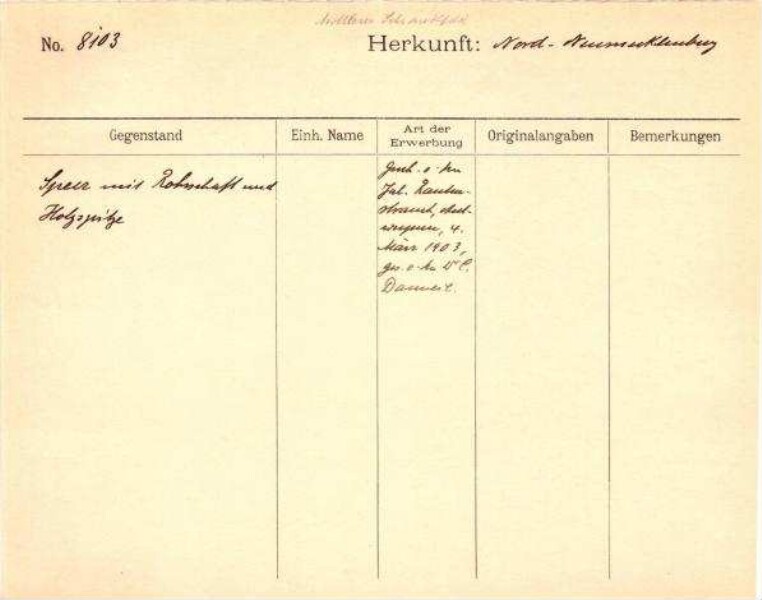 Mittlerer Schrank
No. 8103
Herkunft: Nord-Neumecklenburg
Gegenstand
Einh. Name
Art der Erwerbung
Originalangaben
Bemerkungen
Speer mit Rohrschaft und
Holzspitze
Gesch. v. Hn
Jul. Rauten-
strauch, Ant-
werpen, 4.
März 1903,
ges. v. Hn Dr C.
Danneil.